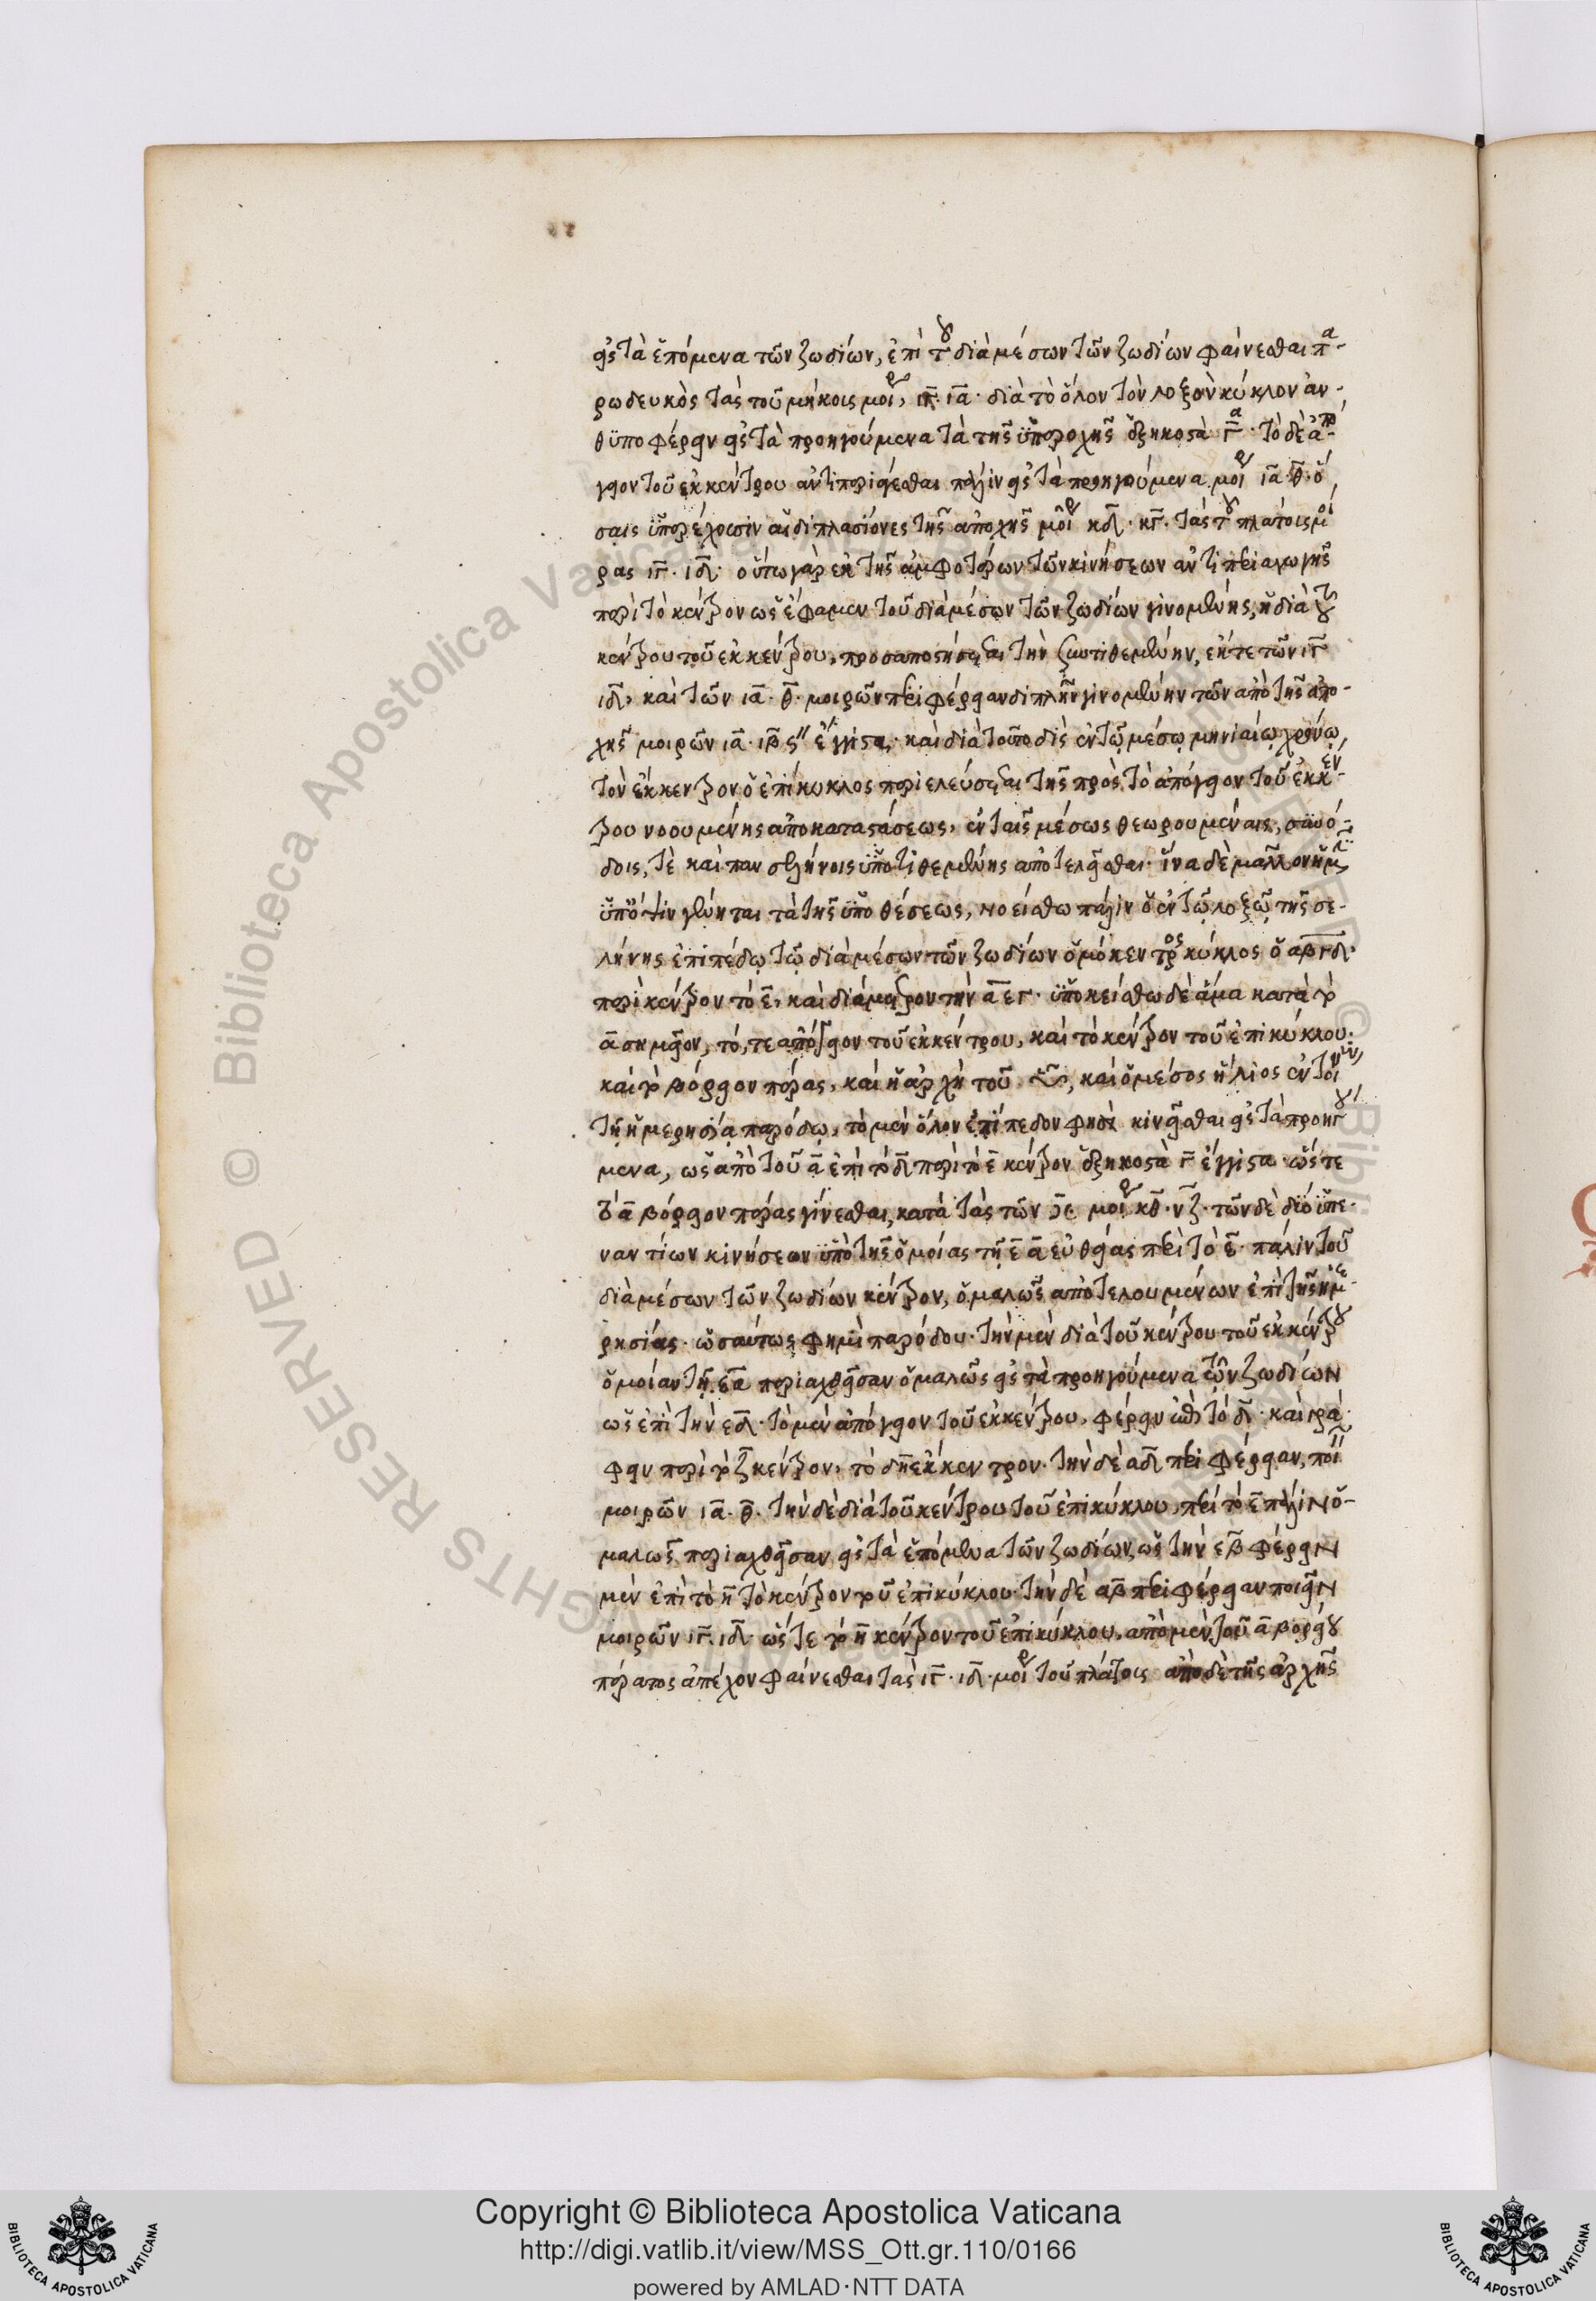 εἰς τὰ ἑπόμενα τῶν ζωδίων, ἐπὶ τοῦ διὰ μέσων τῶν ζωδίων φαίνεσθαι πα-
ρωδευκὸς τὰς τοῦ μήκους μοίρ, ιγ. ια. διὰ τὸ ὅλον τὸν λοξὸν κύκλον ἀν-
θυποφέρειν εἰς τὰ προηγούμενα τὰ τῆς ὑπεροχῆς ἑξηκοστὰ γ. τὸ δὲ ἀπό
γειον τοῦ ἐκκέντρου ἀντιπεριάγεσθαι πάλιν εἰς τὰ προηγούμενα μοίρ ια. θ. ὅ
σαις ὑπερέχουσιν αἱ διπλασίονες τῆς ἀποχῆς μοίρ κδ. κγ. τὰς τοῦ πλάτους μοί
ρας ιγ. ιδ. οὕτω γὰρ ἐκ τῆς ἀμφοτέρων τῶν κινήσεων ἀντιπεριαγωγῆς
περὶ τὸ κέντρον ὡς ἔφαμεν τοῦ διὰ μέσων τῶν ζωδίων γινομένης, ἡ διὰ τοῦ
κέντρου τοῦ ἐκκέντρου, προσαποστήσεται τὴν συντιθεμένην, ἔκ τε τῶν ιγ
ιδ, καὶ τῶν ια. θ. μοιρῶν περιφέρειαν διπλῆν γινομένην τῶν ἀπὸ τῆς ἀπο-
χῆς μοιρῶν ια. ιβ ς'' ἔγγιστα. καὶ διὰ τοῦτο δὶς ἐν τῷ μέσῳ μηνιαίῳ χρόνῳ,
τὸν ἔκκεντρον ὁ ἐπίκυκλος περιελεύσεται τῆς πρὸς τὸ ἀπόγειον τοῦ ἐκκέν-
τρου νοουμένης ἀποκαταστάσεως, ἐν ταῖς μέσως θεωρουμέναις, συνό-
δοις, τὲ καὶ πανσελήνοις ὑποτιθεμένης ἀποτελεῖσθαι. ἵνα δὲ μᾶλλον ἡμῖν
ὑπ' ὄψιν γένηται τὰ τῆς ὑποθέσεως, νοείσθω πάλιν ὁ ἐν τῷ λοξῷ τῆς σε-
λήνης ἐπιπέδῳ τῷ διὰ μέσων τῶν ζωδίων ὁμόκεντρος κύκλος ὁ αβγδ.
περὶ κέντρον τὸ ε, καὶ διάμετρον τὴν α ε γ. ὑποκείσθω δὲ ἅμα κατὰ τὸ
α σημεῖον, τό, τε ἀπόγειον τοῦ ἐκκέντρου, καὶ τὸ κέντρον τοῦ ἐπικύκλου.
καὶ τὸ βόρειον πέρας, καὶ ἡ ἀρχὴ τοῦ , καὶ ὁ μέσος ἥλιος ἐν τοίνυν
τῇ ἡμερησίᾳ παρόδῳ, τὸ μὲν ὅλον ἐπίπεδον φησὶ κινεῖσθαι εἰς τὰ προηγού
μενα, ὡς ἀπὸ τοῦ α ἐπὶ τὸ δ περὶ τὸ ε κέντρον ἑξηκοστὰ γ ἔγγιστα. ὥς τε
τὸ α βόρειον πέρας γίνεσθαι, κατὰ τὰς τῶν μοίρ κθ. νζ. τῶν δὲ δύο ὑπε-
ναντίων κινήσεων ὑπὸ τῆς ὁμοίας τῇ ε α εὐθείας περὶ τὸ ε. πάλιν τοῦ
διὰ μέσων τῶν ζωδίων κέντρον, ὁμαλῶς ἀποτελουμένων ἐπὶ τῆς ἡμε-
ρησίας. ὡσαύτως φημὶ παρόδου. τὴν μὲν διὰ τοῦ κέντρου τοῦ ἐκκέντρου
ὁμοίαν τῇ εα περιαχθεῖσαν ὁμαλῶς εἰς τὰ προηγούμενα τῶν ζωδίων
ὡς ἐπὶ τὴν εδ. τὸ μὲν ἀπόγειον τοῦ ἐκκέντρου, φέρειν ἐπὶ τὸ δ. καὶ γρά
φειν περὶ τὸ ζ κέντρον, τὸ δη ἔκκεντρον. τὴν δὲ αδ περιφέρειαν, ποιεῖν
μοιρῶν ια. θ. τὴν δὲ διὰ τοῦ κέντρου τοῦ ἐπικύκλου, περὶ τὸ ε πάλιν ὁ-
μαλῶς περιαχθεῖσαν εἰς τὰ ἑπόμενα τῶν ζωδίων, ὡς τὴν εβ φέρειν
μὲν ἐπὶ τὸ η τὸ κέντρον τοῦ ἐπικύκλου. τὴν δὲ αβ περιφέρειαν ποιεῖν
μοιρῶν ιγ. ιδ. ὥς τε τὸ η κέντρον τοῦ ἐπικύκλου, ἀπὸ μὲν τοῦ α βορείου
πέρατος ἀπέχον φαίνεσθαι τὰς ιγ. ιδ. μοίρ τοῦ πλάτους ἀπὸ δὲ τῆς ἀρχῆς
Copyright © Biblioteca Apostolica Vaticana
http://digi.vatlib.it/view/MSS_Ott.gr.110/0166
powered by AMLAD·NTT DATA